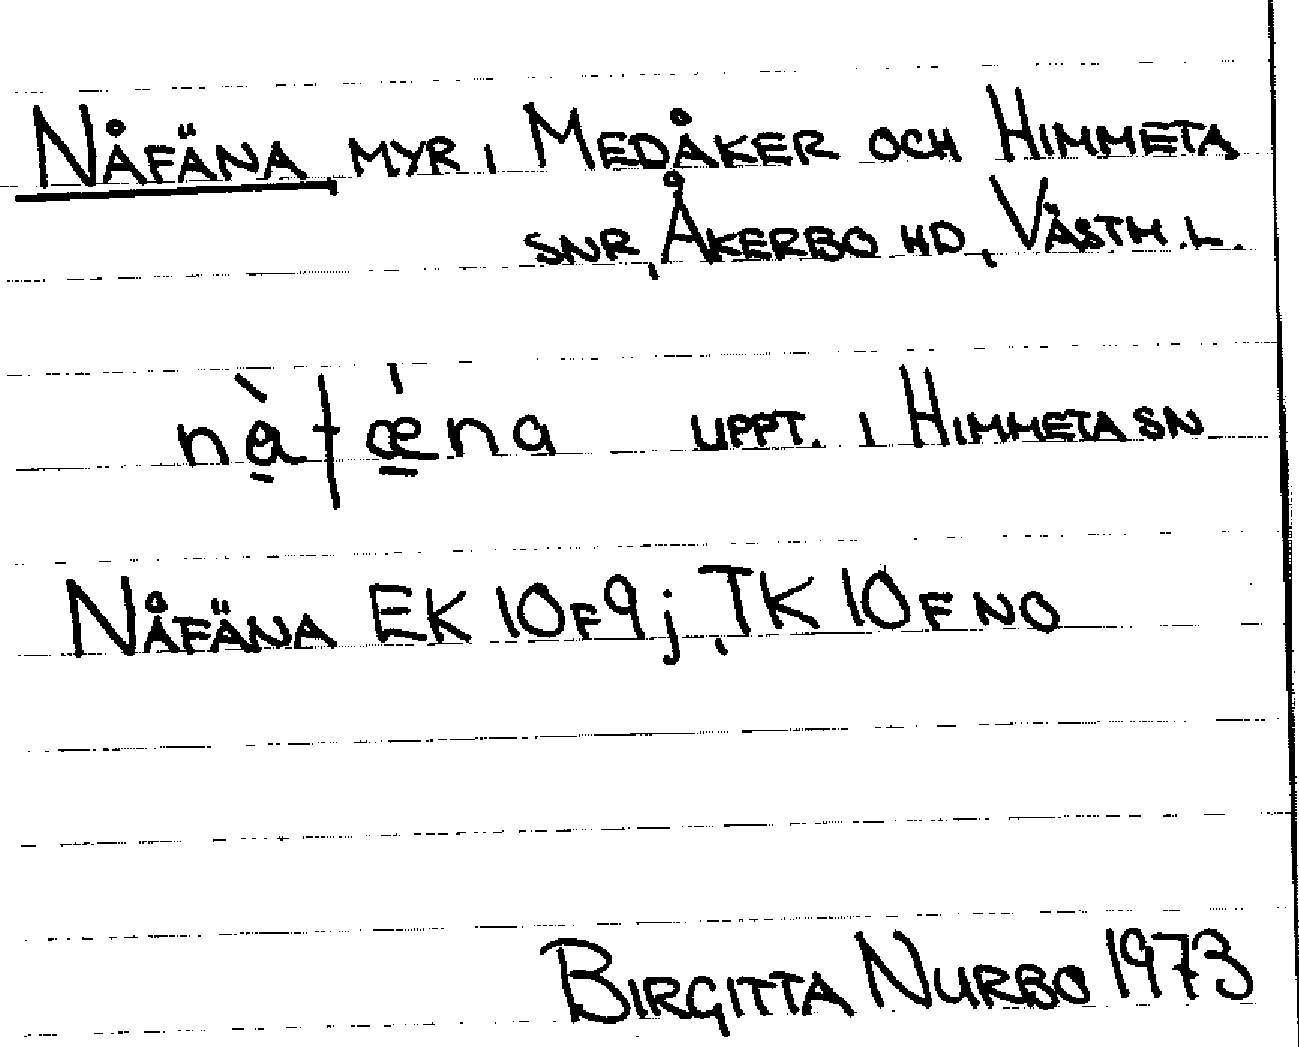 NÅFÄNA MYR I MEDÅKER OCH HIMMETA
SNR, ÅKERBO HD, VÄSTM.L.
nà̱fǽ̱na UPPT. I HIMMETA SN
NÅFÄNA EK 10F9j, TK 10F NO
BIRGITTA NURBO 1973